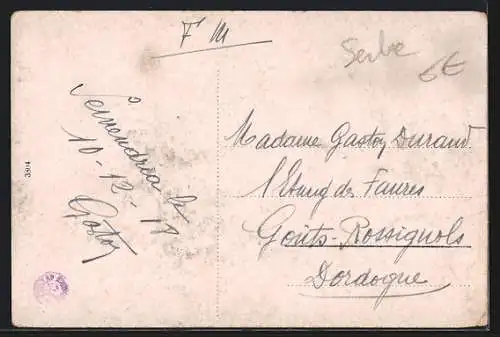 F M
Serbe
6€
Semendria le
10-12-18
Gaston
Madame Gaston Durand
l'Etang des Faures
Gouts-Rossignols
Dordogne
3914